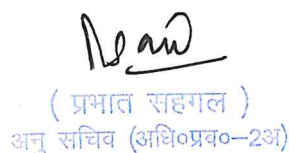 ( प्रभात सहगल )
अनु सचिव (अधि०प्रब०–2अ)